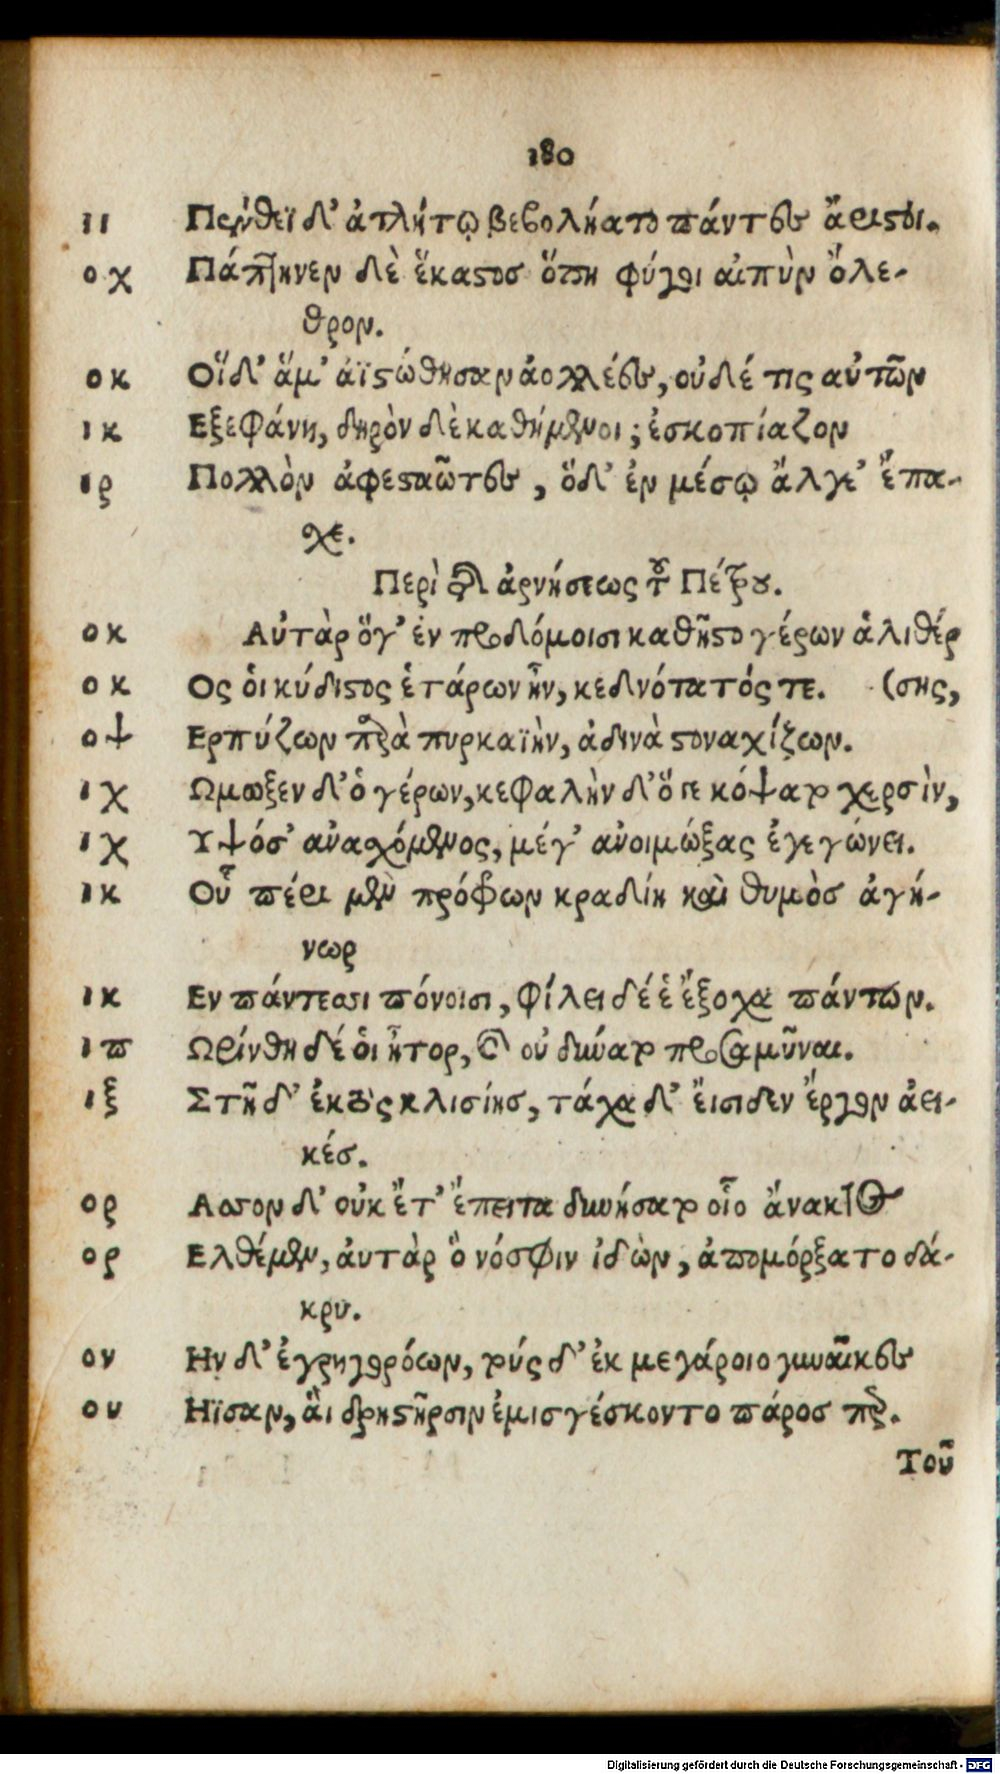 180
ιι Πένθεϊ δ' ἀτλήτῳ βεβολήατο πάντες ἄριστοι.
οχ Πάπτηνεν δὲ ἕκαστος ὅπη φύγοι αἰπὺν ὄλε-
θρον.
οκ Οἵδ' ἅμ' ἀϊστώθησαν ἀολλέες, οὐδέ τις αὐτῶν
ικ Εξεφάνη, δηρὸν δὲ καθήμενοι; ἐσκοπίαζον
ιρ Πολλὸν ἀφεσταῶτες, ὅδ' ἐν μέσῳ ἄλγε' ἔπα-
χε.
Περὶ τῆς ἀρνήσεως τοῦ Πέτρου.
οκ Αὐτὰρ ὅγ' ἐν προδόμοισι καθῆστο γέρων ἁλιθέρ
οκ Ος ὁι κύδιστος ἑτάρων ἦν, κεδνότατός τε. (σης,
οψ Ερπύζων παρὰ πυρκαϊὴν, ἀδινὰ στοναχίζων.
ιχ Ωμωξεν δ' ὁ γέρων, κεφαλὴν δ' ὅγε κόψατο χερσὶν,
ιχ Υψόσ' ἀναχόμενος, μέγ' ἀνοιμώξας ἐγεγώνει.
ικ Οὗ πέρι μὲν πρόφρων κραδίη καὶ θυμὸς ἀγή-
νωρ
ικ Εν πάντεσσι πόνοισι, φίλει δέ ἑ ἔξοχα πάντων.
ιπ Ωρίνθη δέ ὁι ἦτορ, καὶ οὐ δύνατο προσαμῦναι.
ιξ Στῆ δ' ἐκτὸς κλισίης, τάχα δ' ἔισιδεν ἔργον ἀει-
κές.
ορ Ασσον δ' οὐκ ἔτ' ἔπειτα δυνήσατο οἷο ἄνακτος
ορ Ελθέμεν, ἀυτὰρ ὁ νόσφιν ἰδὼν, ἀπομόρξατο δά-
κρυ.
ον Ην δ' ἐγρηγορόων, τύς δ' ἐκ μεγάροιο γυναῖκες
ου Ηϊσαν, ἃι δρηστῆρσιν ἐμισγέσκοντο πάρος περ.
Τοῦ
Digitalisierung gefördert durch die Deutsche Forschungsgemeinschaft - DFG